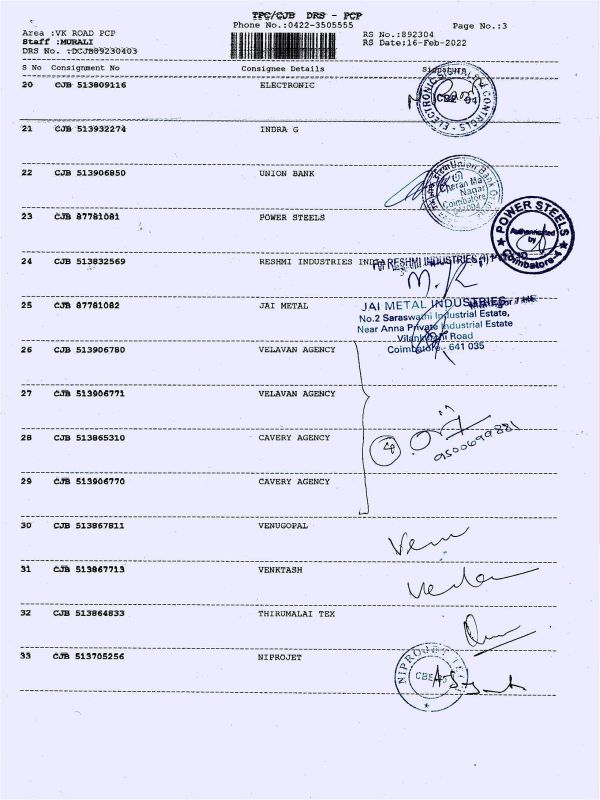 TPC/CJB DRS - PCP
Phone No.:0422-3505555
Page No.:3
Area :VK ROAD PCP
Staff :MURALI
DRS No. :DCJB89230403
RS No.:892304
RS Date:16-Feb-2022
S No Consignment No Consignee Details Signature
20 CJB 513809116 ELECTRONIC
ELECTRONIC CONTROLS
21 CJB 513932274 INDRA G
22 CJB 513906850 UNION BANK
Union Bank
Cheran Ma
Nagar
Coimbatore
23 CJB 87781081 POWER STEELS
POWER STEELS
Authenticated
by
Coimbatore-
24 CJB 513832569 RESHMI INDUSTRIES
RESHMI INDUSTRIES
25 CJB 87781082 JAI METAL
JAI METAL INDUSTRIES
No.2 Saraswathi Industrial Estate,
Near Anna Private Industrial Estate
Road
Coimbatore - 641 035
26 CJB 513906780 VELAVAN AGENCY
27 CJB 513906771 VELAVAN AGENCY
28 CJB 513865310 CAVERY AGENCY
4
9500699881
29 CJB 513906770 CAVERY AGENCY
30 CJB 513867811 VENUGOPAL
Venu
31 CJB 513867713 VENKTASH
32 CJB 513864833 THIRUMALAI TEX
33 CJB 513705256 NIPROJET
NIPROJET
CBE